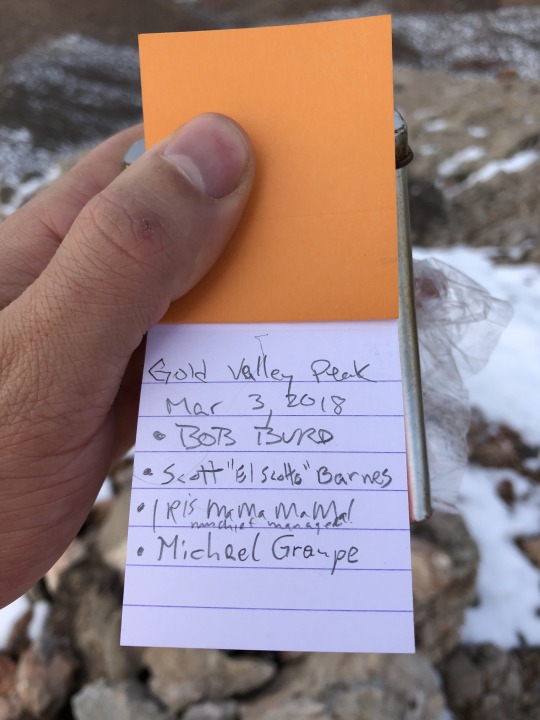 Gold Valley Peak
Mar 3, 2018
• BOB BURD
• Scott "El Scotto" Barnes
• IRIS MaMa MaMa!
mischief managed
• Michael Graupe